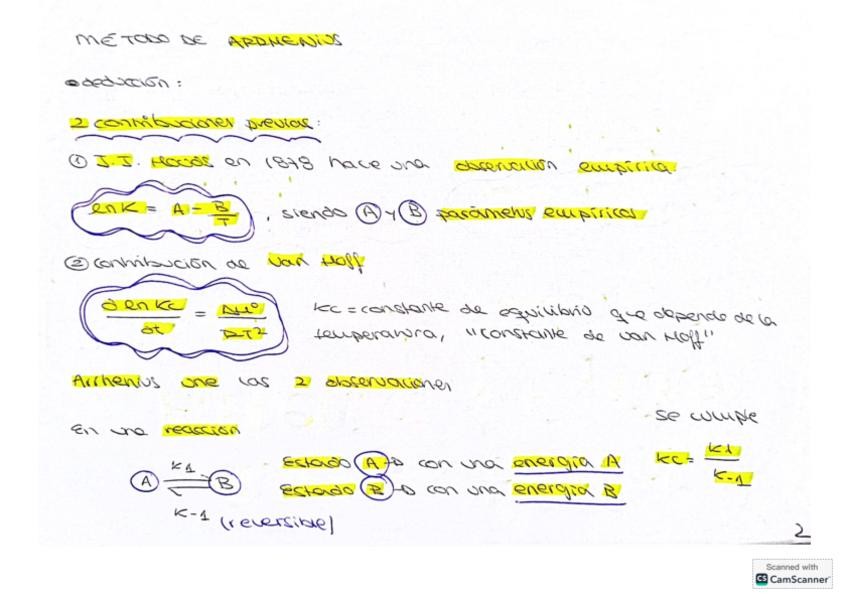 MÉTODO DE ARRHENIUS
• deducción:
2 contribuciones previas:
① J.J. Hoods en 1878 hace una observación empírica.
ln K = A - B/T , siendo A y B parámetros empíricos
② contribución de Van Hoff
d ln Kc / dt = ΔH° / RT² Kc = constante de equilibrio que depende de la
temperatura, "constante de van Hoff"
Arrhenius une las 2 observaciones
En una reacción
A ⇌ B
K1
K-1 (reversible)
Estado A → con una energía A
Estado B → con una energía B
se cumple
Kc = K1 / K-1
2
Scanned with
CS CamScanner